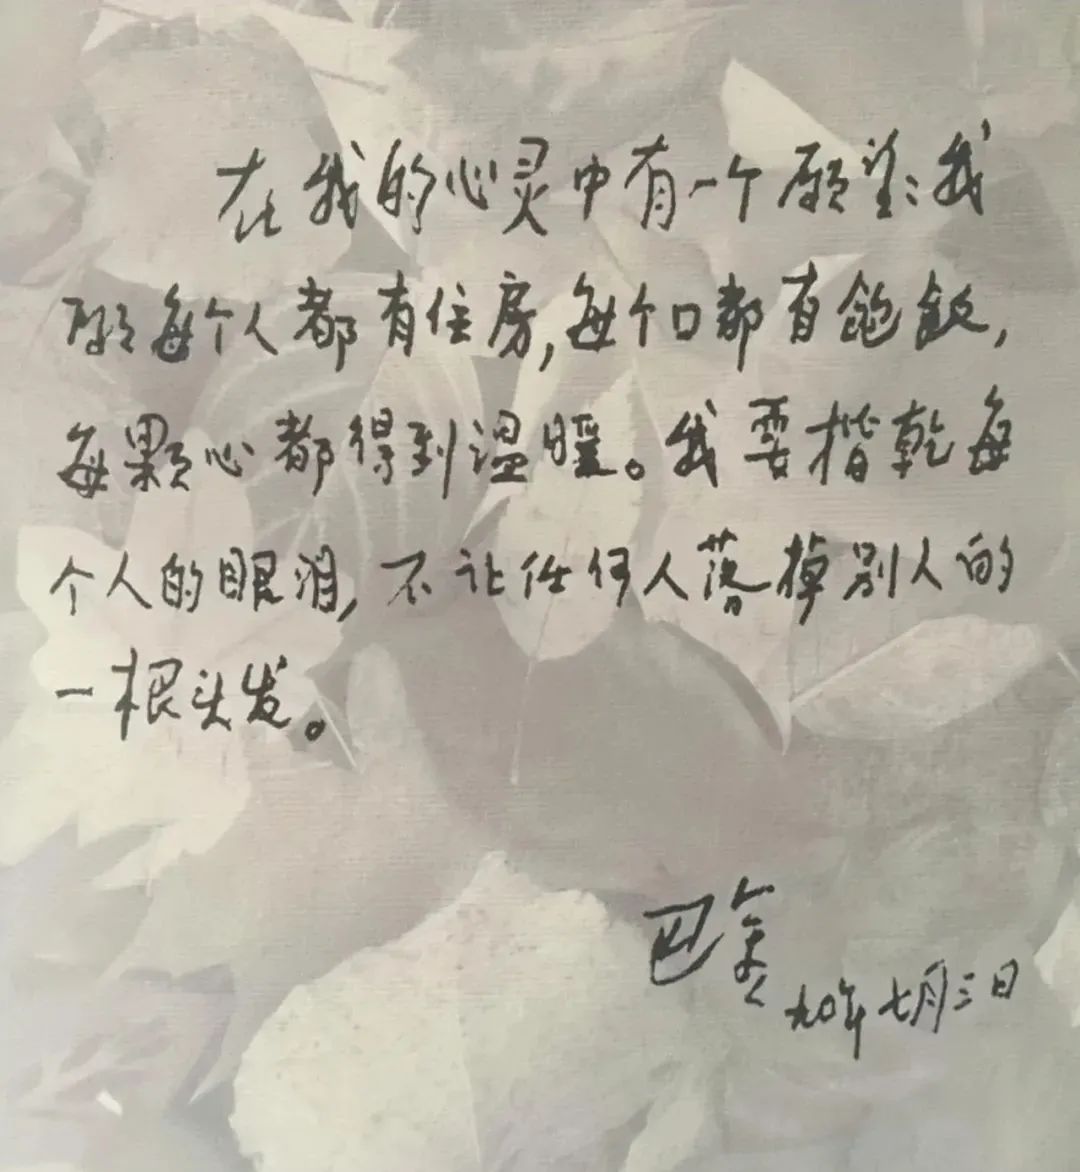 在我的心灵中有一个愿望：我
愿每个人都有住房，每个口都有饱饭，
每颗心都得到温暖。我要揩乾每
个人的眼泪，不让任何人落掉别人的
一根头发。
巴金
九〇年七月三日